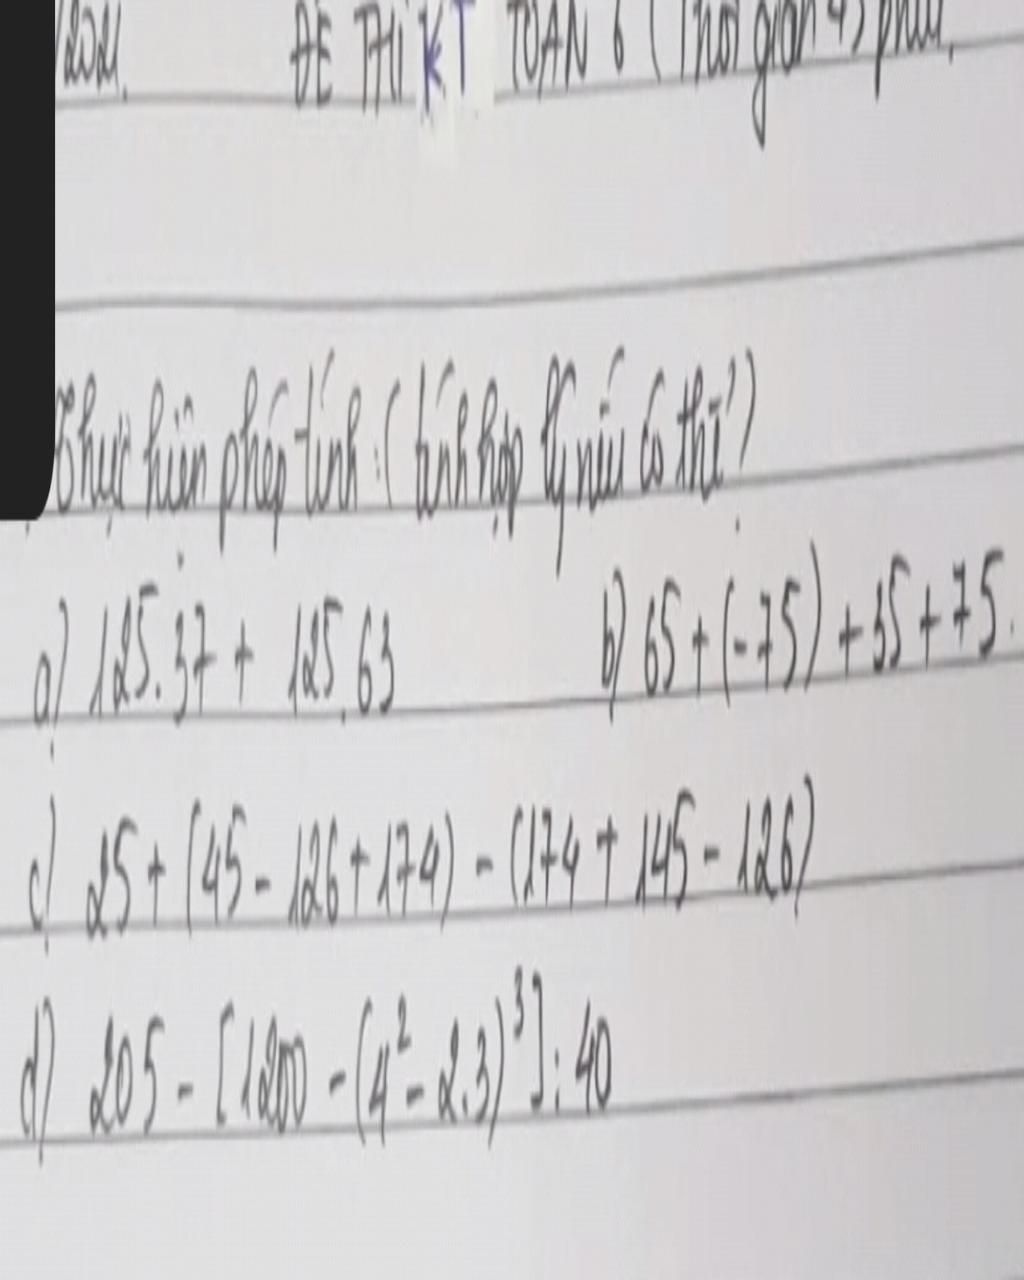 /2021. ĐỀ THI KT TOÁN 6 (Thời gian 45 phút.
Thực hiện phép tính: (tính hợp lý nếu có thể)
a) 125.37 + 125.63 b) 65 + (-75) + 35 + 75.
c) 25 + (45 - 126 + 174) - (174 + 145 - 126)
d) 205 - [1200 - (4² - 2.3)³] : 40